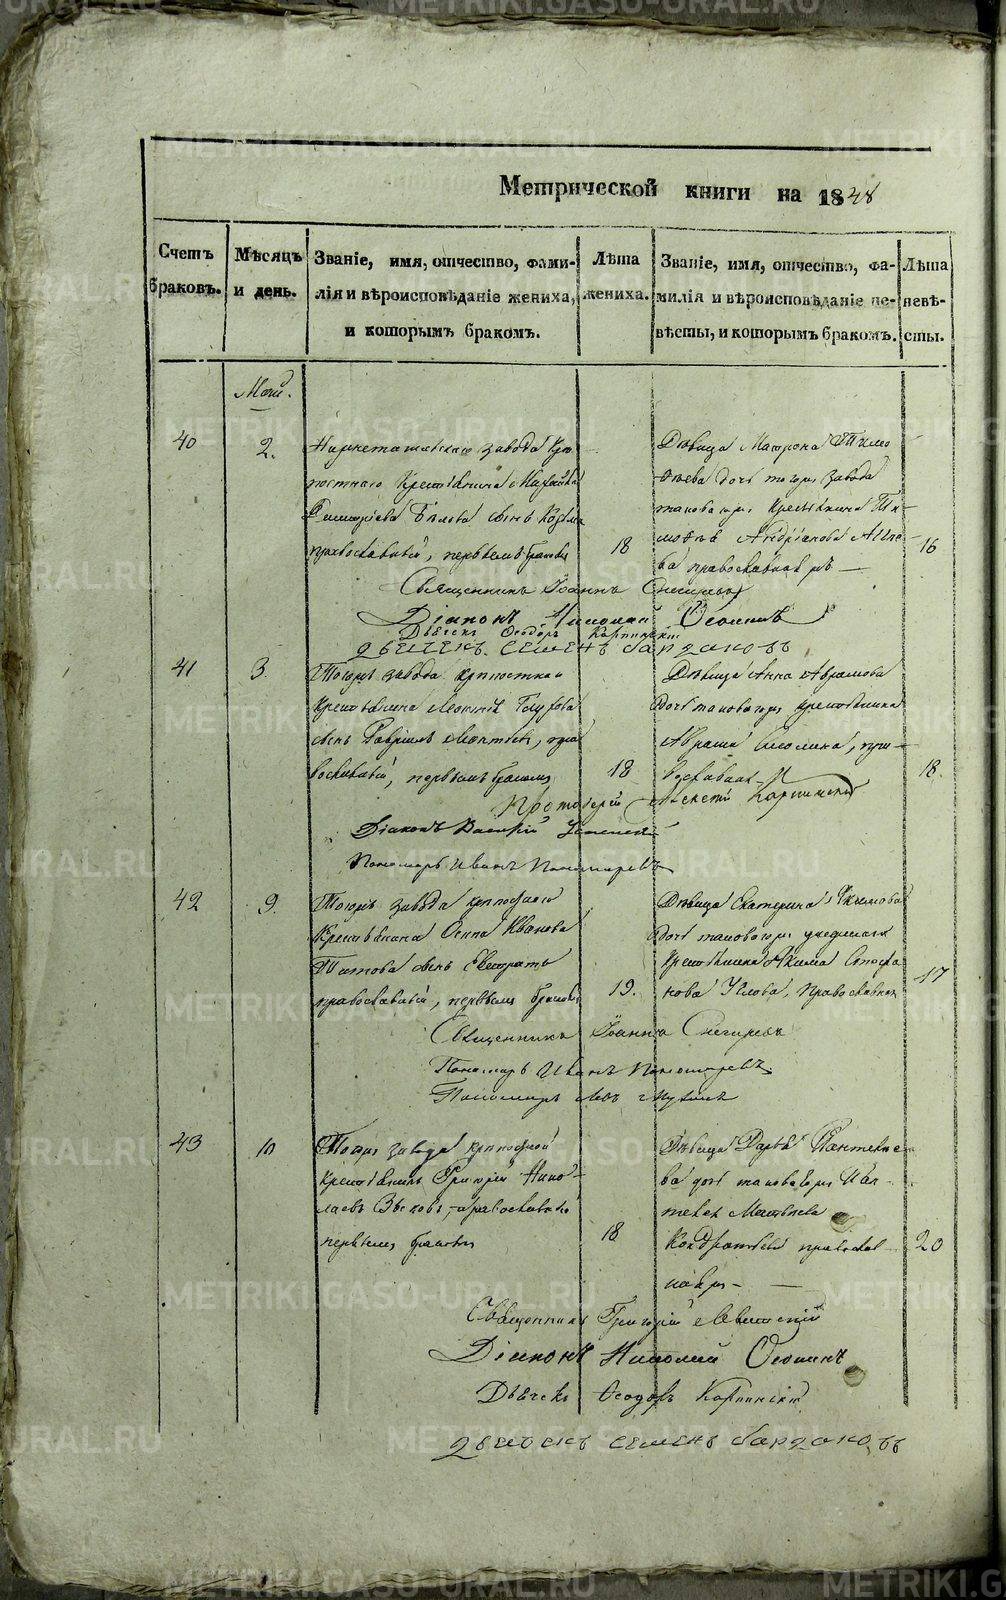 METRIKI.GASO-URAL.RU
Метрической книги на 1848
Счетъ браковъ.
Мѣсяцъ и день.
Званіе, имя, отчество, фами-
лія и вѣроисповѣданіе жениха,
и которымъ бракомъ.
Лѣта
жениха.
Званіе, имя, отчество, фа-
милія и вѣроисповѣданіе не-
вѣсты, и которымъ бракомъ.
Лѣта
невѣ-
сты.
Май.
40
2.
завода Крѣ
постнаго Крестьянина
Димитріева Бѣлова сынъ Козма
православный, первымъ бракомъ
18
Дѣвица Матрона Тимо
ѳеева дочь тогожъ завода
таковагожъ Крестьянина Ти-
моѳея Андріанова
православная
16
Священникъ Іоаннъ Снегиревъ
Діаконъ Николай Осининъ
Дьячекъ Ѳеодоръ Карпинскій
дьячекъ семенъ бардаковъ
41
3.
Тогожъ завода крѣпостнаго
крестьянина Леонтія Голубова
сынъ Гавріилъ Леонтьевъ, пра
вославный, первымъ бракомъ
18
Дѣвица Анна Аврамова
дочь таковагожъ крестьянина
Аврама Смолина, пра-
вославная
18.
Протоіерей Алексѣй Карпинскій
Діаконъ Василій Успенскій
Пономарь Иванъ Пономаревъ
42
9.
Тогожъ завода крѣпостнаго
Крестьянина Осипа Иванова
Титова сынъ Евстратъ
православный, первымъ бракомъ
19.
Дѣвица Екатерина Якимова
дочь таковагожъ
крестьянина Якима Стефа
нова Углова, Православная
17
Священникъ Іоаннъ Снегиревъ
Пономарь Иванъ Пономаревъ
Пономарь Левъ
43
10
Тогожъ завода крѣпостной
крестьянинъ Григорій Нико-
лаевъ Зыковъ, православнаго
первымъ бракомъ
18
Дѣвица Дарья Пантелее
ва дочь таковагожъ Пан-
телея Матвѣева
Кондратьева православ-
ная
20
Священникъ Григорій Левитскій
Діаконъ Николай Осининъ
Дьячекъ Ѳеодоръ Карпинскій
дьячекъ семенъ бардаковъ